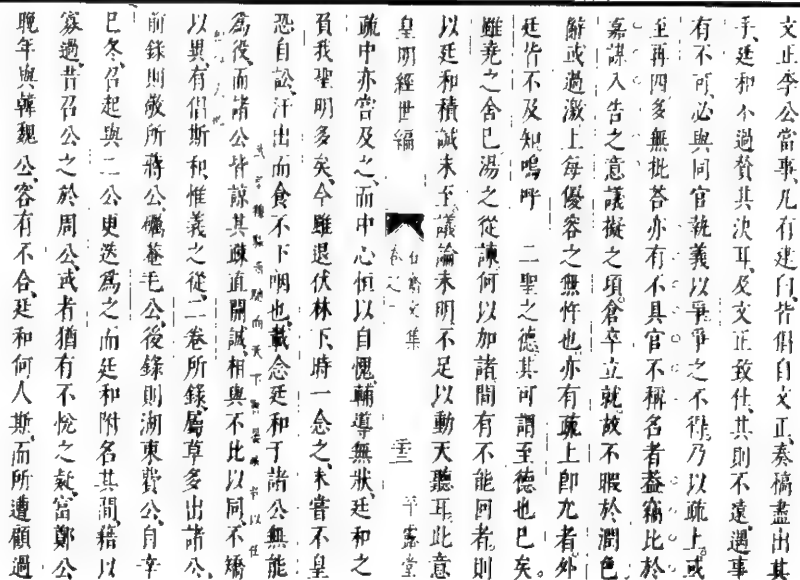 文正李公當事凡有建白皆倡自文正奏稿盡出其
手廷和不過贊其決耳及文正致仕其則不遠遇事
有不可必與同官執義以爭爭之不得乃以疏上或
至再四多無批答亦有不具官不稱名者葢竊比於
嘉謀入告之意議擬之頃倉卒立就故不暇於潤色
辭或過激上每優容之無忤也亦有疏上卽允者外
廷皆不及知嗚呼 二聖之德其可謂至德也已矣
雖堯之舍已湯之從諫何以加諸間有不能回者則
以廷和積誠未至議論未明不足以動天聽耳此意
皇明經世編 卷之一 平露堂
疏中亦嘗及之而中心恒以自愧輔導無狀廷和之
負我聖明多矣今雖退伏林下時一念之未嘗不皇
恐自訟汗出而食不下咽也載念廷和于諸公無能
爲役而諸公皆諒其疎直開誠相與不比以同不矯
以異有倡斯和惟義之從二卷所錄屬草多出諸公
前錄則敬所蔣公礪菴毛公後錄則湖東費公自辛
巳冬召起與二公更迭爲之而廷和附名其間藉以
寡過昔召公之於周公或者猶有不悅之疑富鄭公
晚年與韓魏公容有不合廷和何人斯而所遭顧過